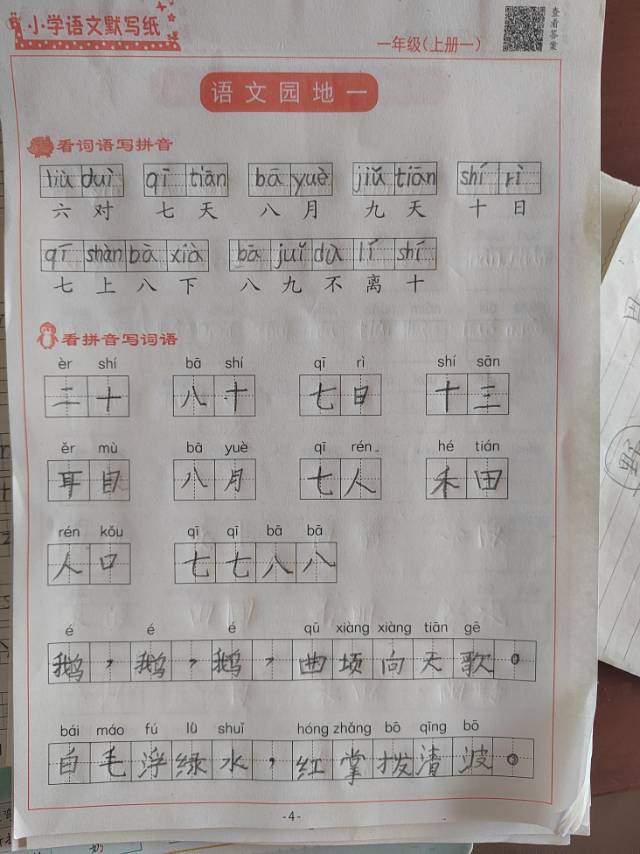 小学语文默写纸
一年级(上册一)
查看答案
语文园地一
看词语写拼音
liù duì qī tiān bā yuè jiǔ tiān shí rì
六 对 七 天 八 月 九 天 十 日
qī shàn bà xià bā juǐ dù lí shí
七 上 八 下 八 九 不 离 十
看拼音写词语
èr shí bā shí qī rì shí sān
二十 八十 七日 十三
ěr mù bā yuè qī rén hé tián
耳目 八月 七人 禾田
rén kǒu qī qī bā bā
人口 七七八八
é é é qū xiàng xiàng tiān gē
鹅,鹅,鹅,曲项向天歌。
bái máo fú lǜ shuǐ hóng zhǎng bō qīng bō
白毛浮绿水,红掌拨清波。
-4-